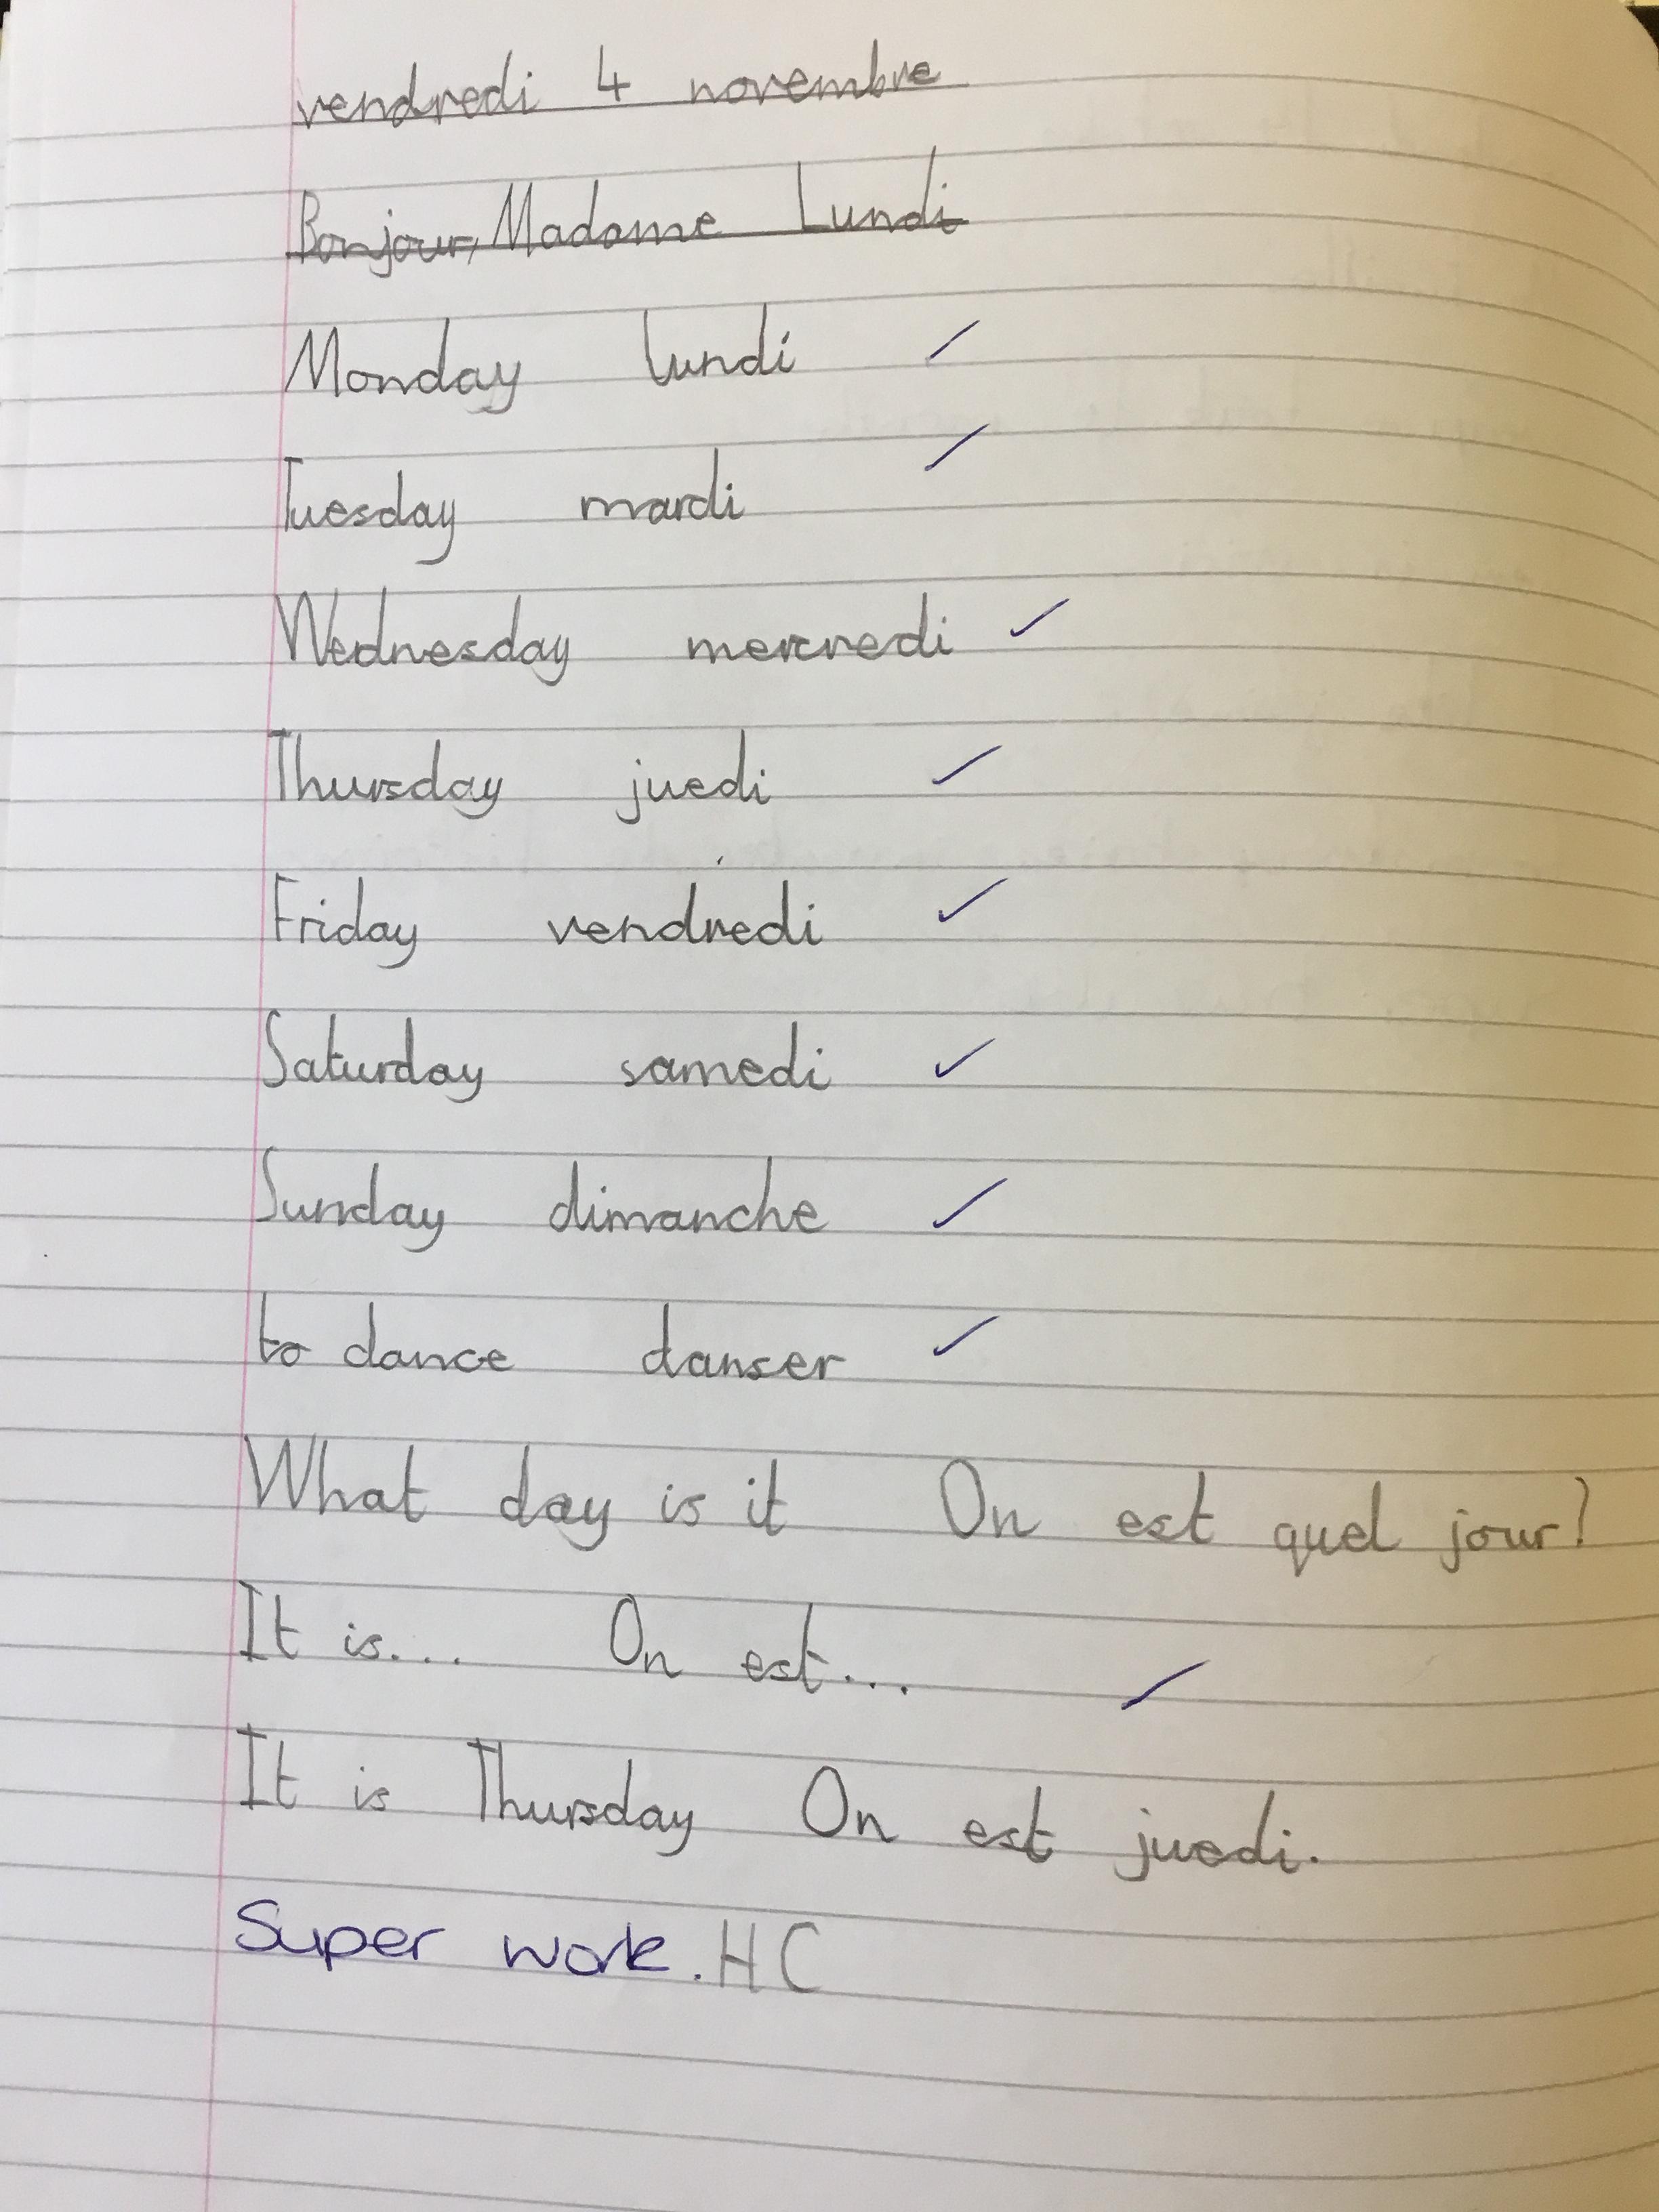 vendredi 4 novembre
Bonjour, Madame Lundi
Monday lundi
Tuesday mardi
Wednesday mercredi
Thursday juedi
Friday vendredi
Saturday samedi
Sunday dimanche
to dance danser
What day is it On est quel jour?
It is... On est...
It is Thursday On est juedi.
Super work. HC